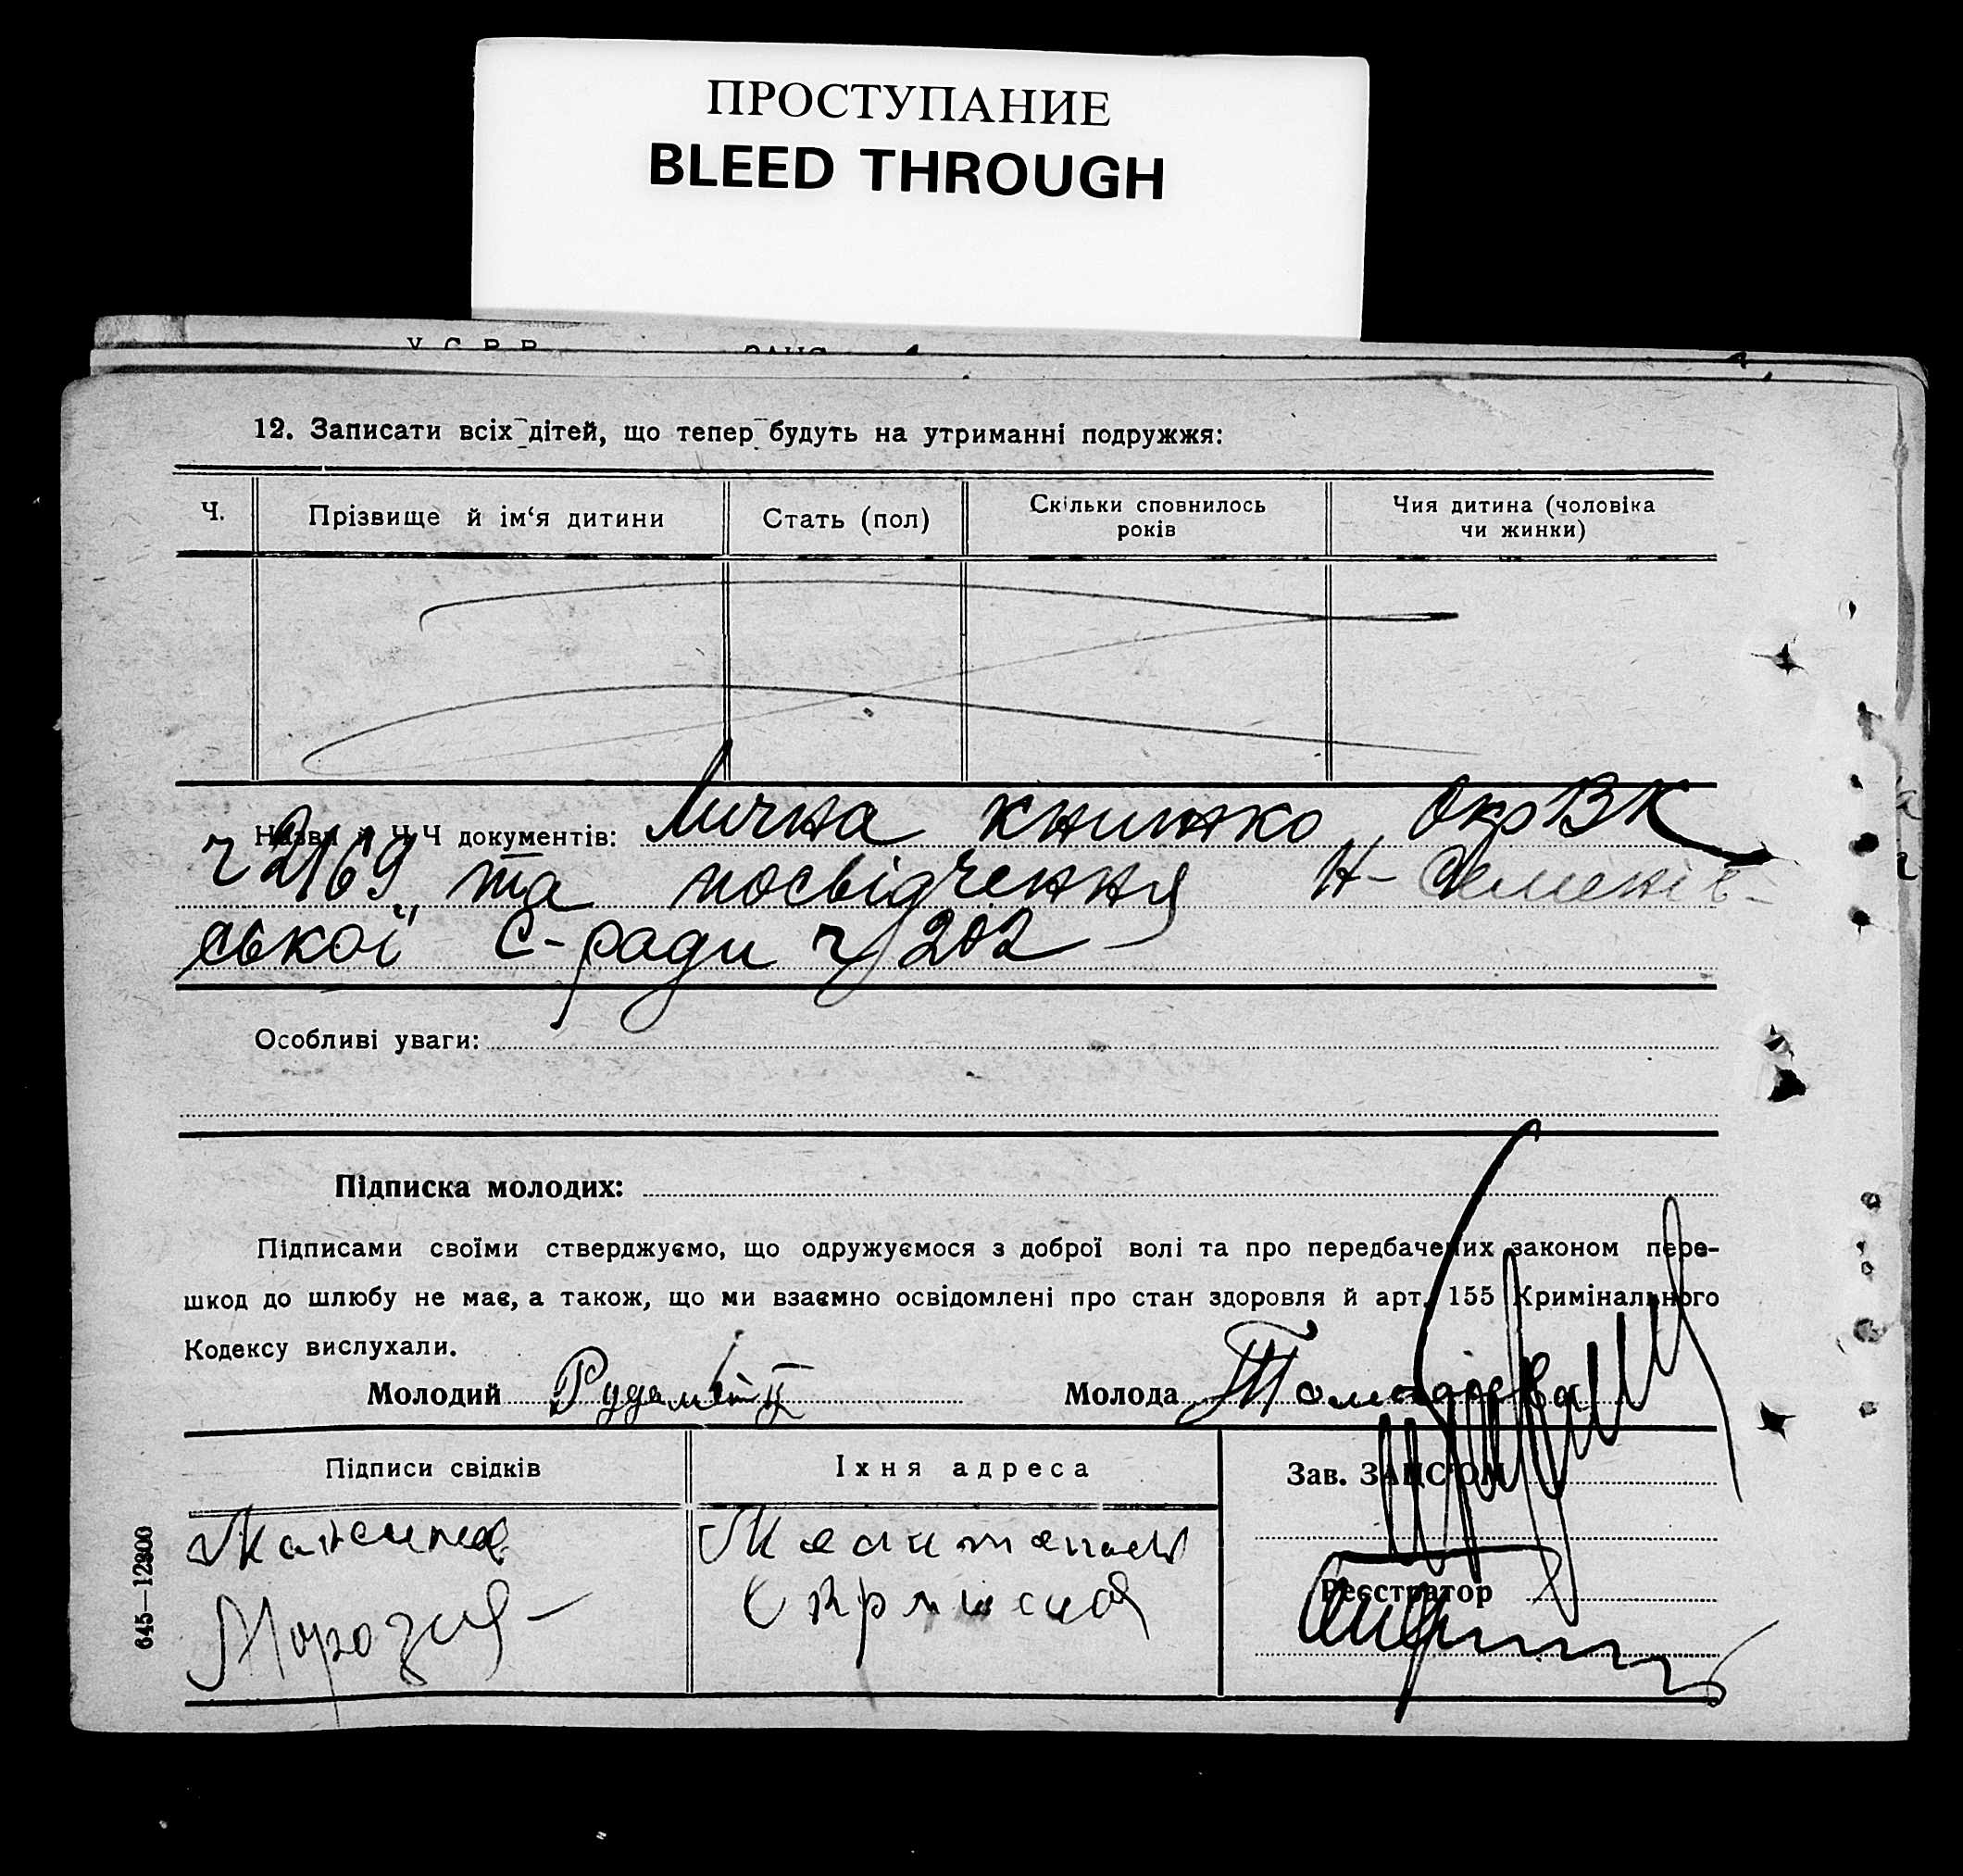 ПРОСТУПАНИЕ
BLEED THROUGH
12. Записати всіх дітей, що тепер будуть на утриманні подружжя:
Ч.
Прізвище й ім‘я дитини
Стать (пол)
Скільки сповнилось
років
Чия дитина (чоловіка
чи жинки)
Назва й Ч.Ч документів: Лична книжка ОкрВК
ч 2169 та посвідчення Н-Семенів-
ської С-ради ч 202
Особливі уваги:
Підписка молодих:
Підписами своїми стверджуємо, що одружуємося з доброї волі та про передбачених законом пере-
шкод до шлюбу не має, а також, що ми взаємно освідомлені про стан здоровля й арт. 155 Кримінального
Кодексу вислухали.
Молодий
Молода
Підписи свідків
Їхня адреса
Зав. ЗАЦС'ОМ
Реєстратор
645—12800